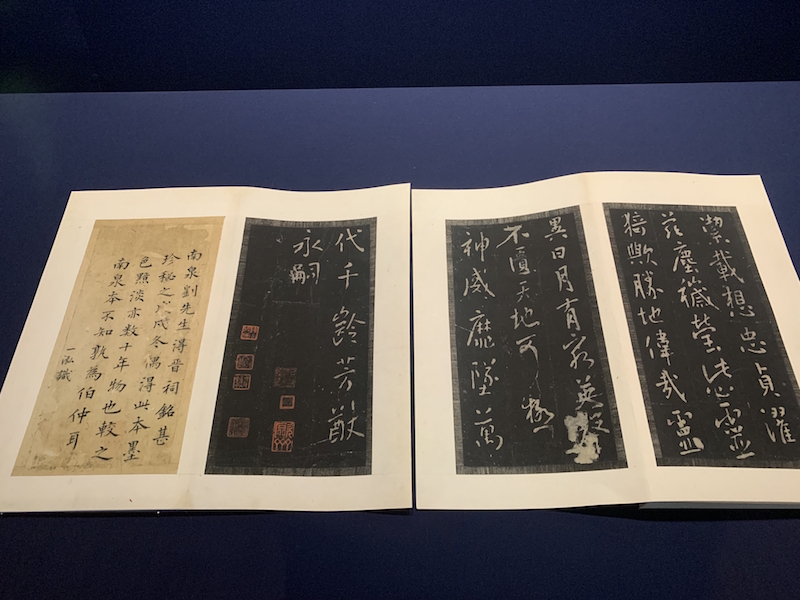 潔載想忠貞濯
茲塵穢瑩此心靈
猗歟勝地偉哉靈
異日月有窮英聲
不匱天地可極
神威靡墜萬
代千齡芳猷
永嗣
南泉劉先生得晉祠銘甚
珍秘之戊戌冬偶得此本墨
色黯淡亦数千年物也較之
南泉本不知孰為伯仲耳
一泓識